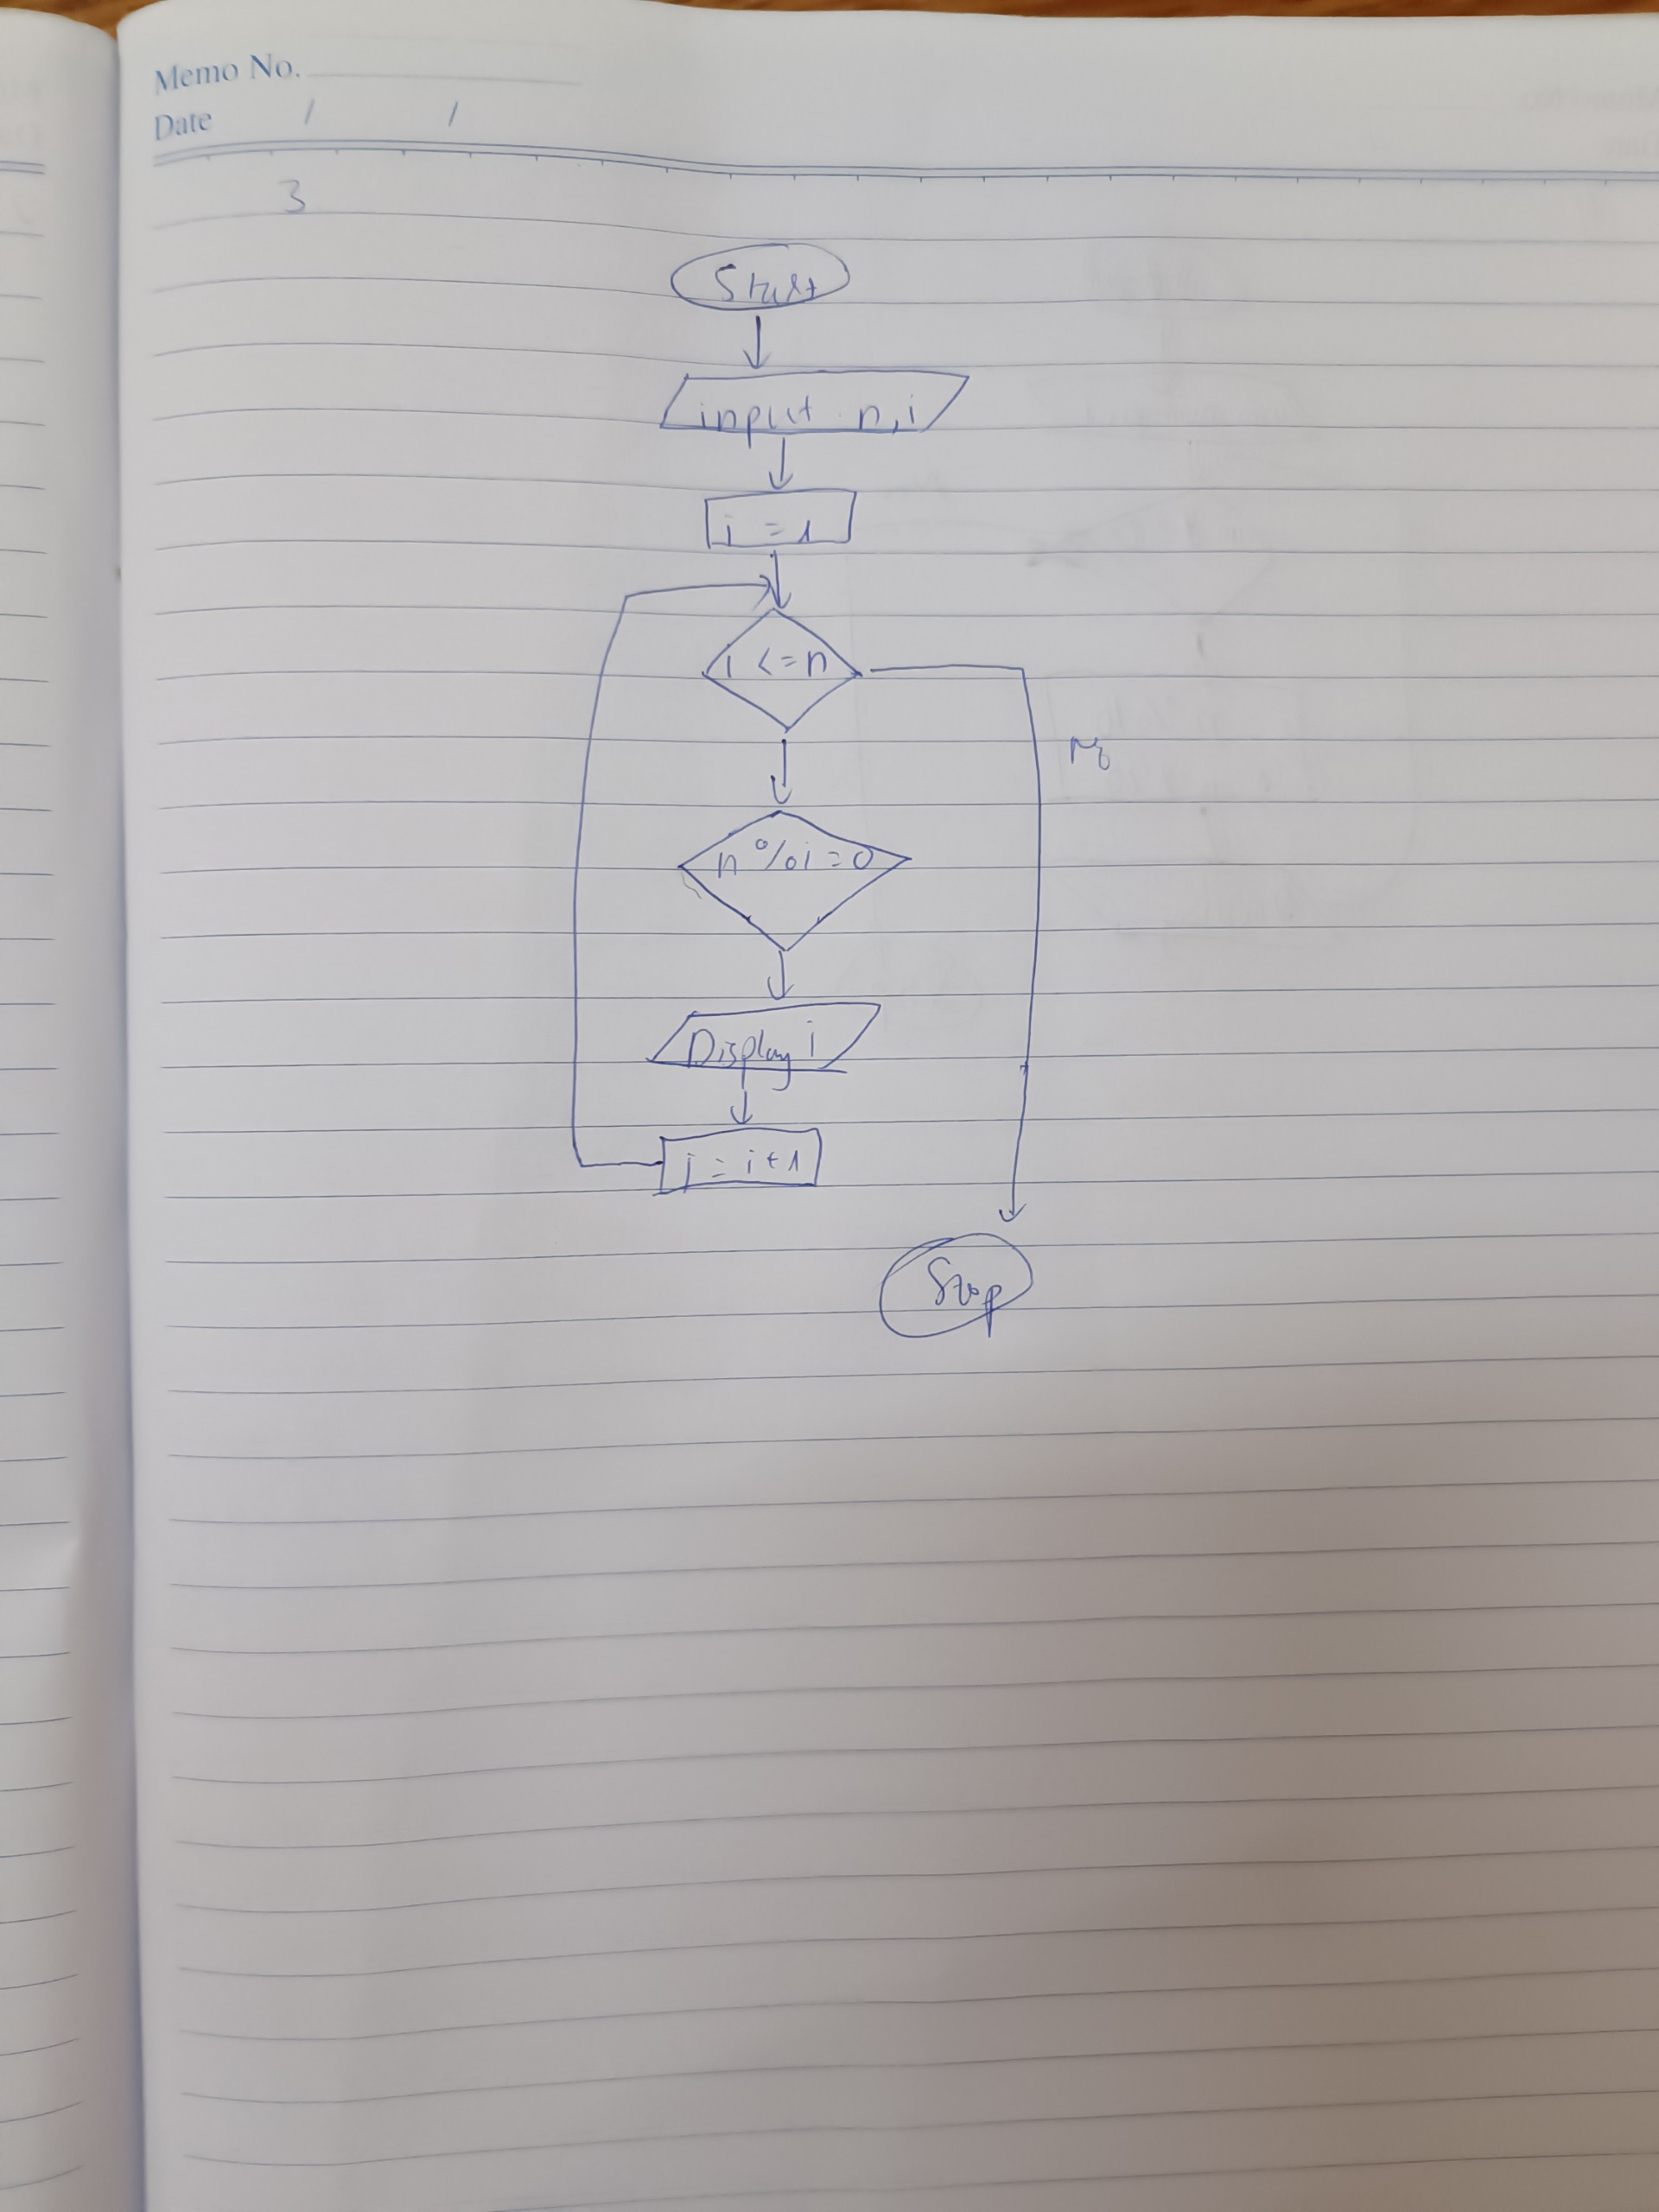 Memo No.
Date / /
3
Start
input n,i
i = 1
i <= n
No
n % i = 0
Display i
i = i + 1
Stop